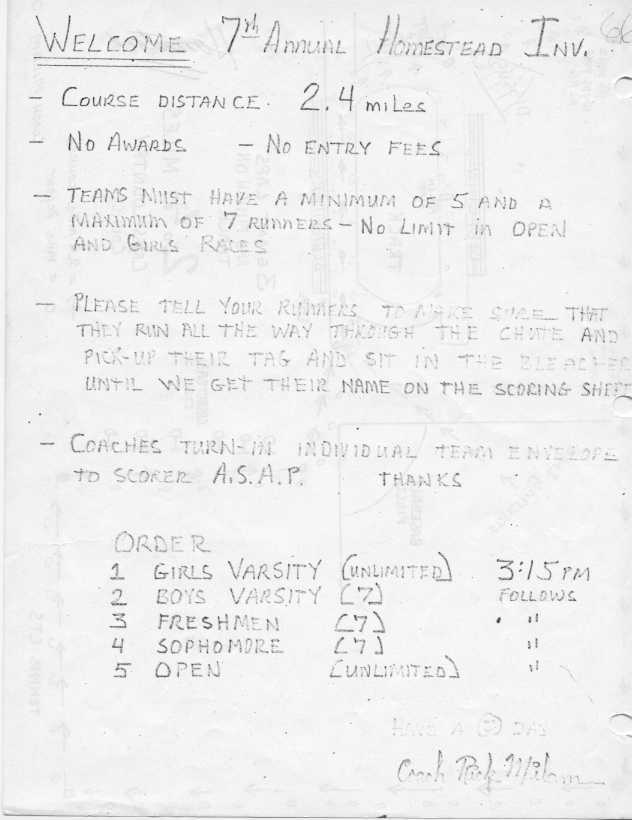 WELCOME 7th ANNUAL HOMESTEAD INV.
- COURSE DISTANCE. 2.4 miles
- NO AWARDS - NO ENTRY FEES
- TEAMS MUST HAVE A MINIMUM OF 5 AND A
MAXIMUM OF 7 RUNNERS - NO LIMIT in OPEN
AND GIRLS RACES
- PLEASE TELL YOUR RUNNERS TO MAKE SURE THAT
THEY RUN ALL THE WAY THROUGH THE CHUTE AND
PICK-UP THEIR TAG AND SIT IN THE BLEACHER
UNTIL WE GET THEIR NAME ON THE SCORING SHEET
- COACHES TURN-IN INDIVIDUAL TEAM ENVELOPE
TO SCORER A.S.A.P. THANKS
ORDER
1 GIRLS VARSITY (UNLIMITED) 3:15 PM
2 BOYS VARSITY (7) FOLLOWS
3 FRESHMEN (7) "
4 SOPHOMORE (7) "
5 OPEN (UNLIMITED) "
HAVE A ☺ DAY
Coach Rick Milam